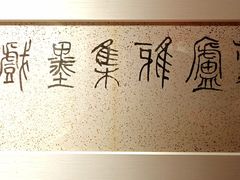 廬雅集墨戲